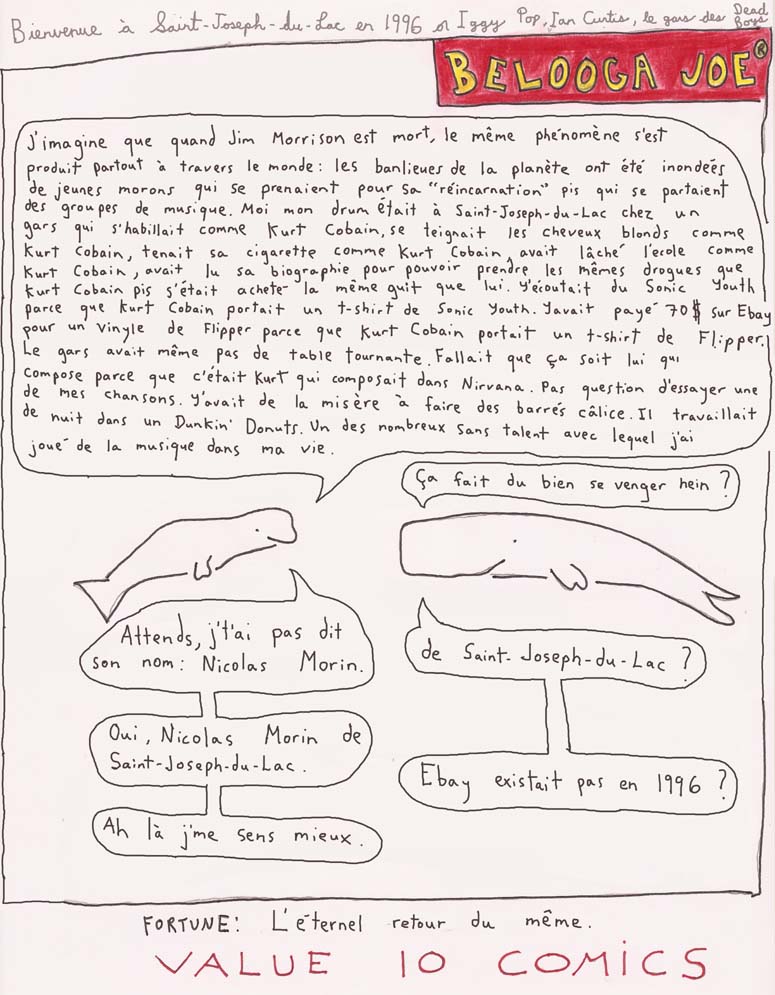 Bienvenue à Saint-Joseph-du-Lac en 1996 or Iggy Pop, Ian Curtis, le gars des Dead Boys
BELOOGA JOE®
J'imagine que quand Jim Morrison est mort, le même phénomène s'est
produit partout à travers le monde: les banlieues de la planète ont été inondées
de jeunes morons qui se prenaient pour sa "réincarnation" pis qui se partaient
des groupes de musique. Moi mon drum était à Saint-Joseph-du-Lac chez un
gars qui s'habillait comme Kurt Cobain, se teignait les cheveux blonds comme
Kurt Cobain, tenait sa cigarette comme Kurt Cobain, avait lâché l'école comme
Kurt Cobain, avait lu sa biographie pour pouvoir prendre les mêmes drogues que
Kurt Cobain pis s'était acheté la même guit que lui. Y'écoutait du Sonic Youth
parce que Kurt Cobain portait un t-shirt de Sonic Youth. Y'avait payé 70$ sur Ebay
pour un vinyle de Flipper parce que Kurt Cobain portait un t-shirt de Flipper.
Le gars avait même pas de table tournante. Fallait que ça soit lui qui
compose parce que c'était Kurt qui composait dans Nirvana. Pas question d'essayer une
de mes chansons. Y'avait de la misère à faire des barrés câlice. Il travaillait
de nuit dans un Dunkin' Donuts. Un des nombreux sans talent avec lequel j'ai
joué de la musique dans ma vie.
Ça fait du bien se venger hein ?
Attends, j't'ai pas dit
son nom: Nicolas Morin.
de Saint-Joseph-du-Lac ?
Oui, Nicolas Morin de
Saint-Joseph-du-Lac.
Ebay existait pas en 1996 ?
Ah là j'me sens mieux.
FORTUNE: L'éternel retour du même.
VALUE 10 COMICS